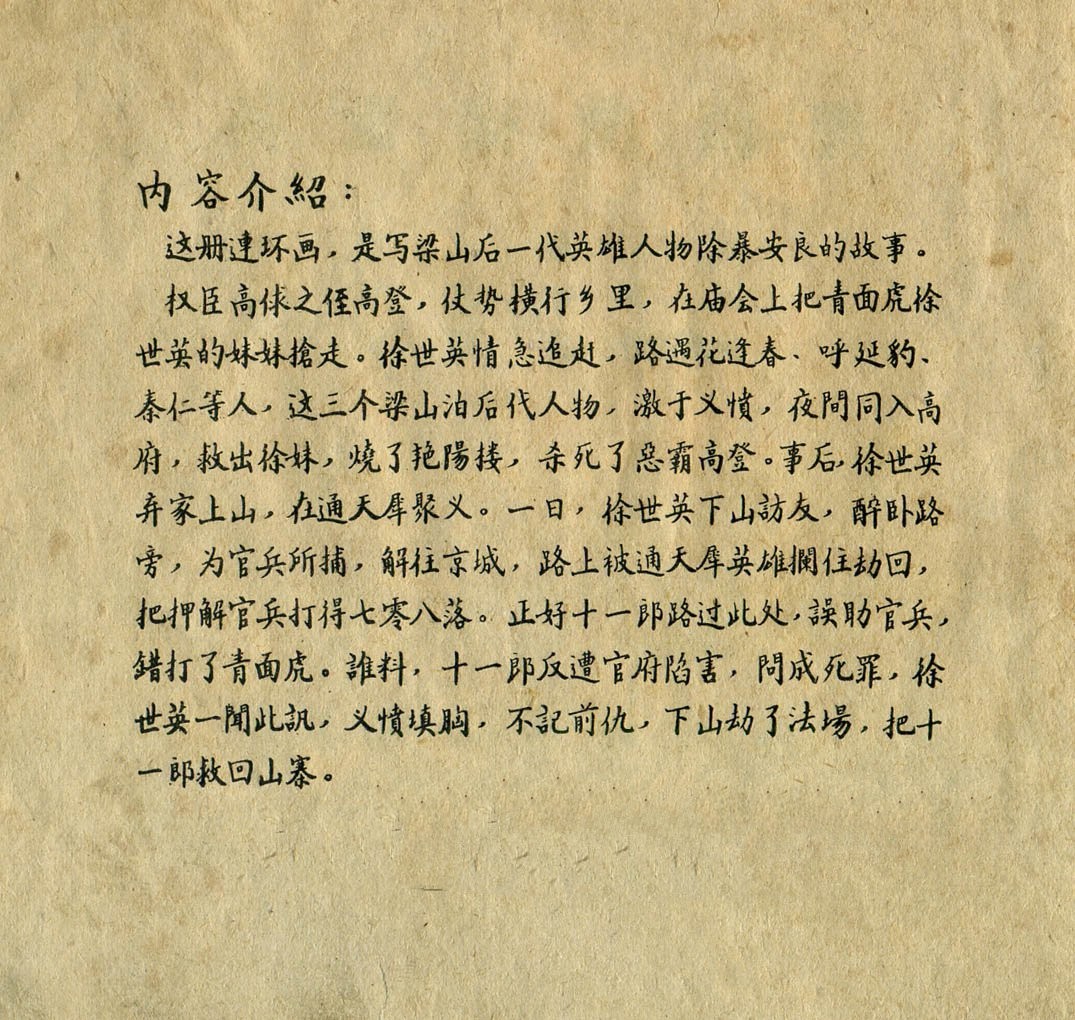 内容介紹：
这册連环画，是写梁山后一代英雄人物除暴安良的故事。
权臣高俅之侄高登，仗势横行乡里，在庙会上把青面虎徐
世英的妹妹搶走。徐世英情急追赶，路遇花逢春、呼延豹、
秦仁等人，这三个梁山泊后代人物，激于义憤，夜間同入高
府，救出徐妹，燒了艳陽楼，杀死了惡霸高登。事后，徐世英
弃家上山，在通天犀聚义。一日，徐世英下山訪友，醉卧路
旁，为官兵所捕，解往京城，路上被通天犀英雄攔住劫回，
把押解官兵打得七零八落。正好十一郎路过此处，誤助官兵，
錯打了青面虎。誰料，十一郎反遭官府陷害，問成死罪，徐
世英一聞此訊，义憤填胸，不記前仇，下山劫了法場，把十
一郎救回山寨。